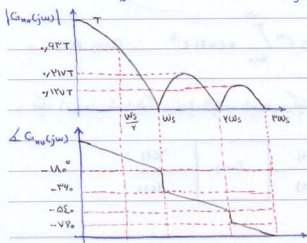 |G_{HO}(jω)|
T
۰,۶۳T
۰,۲۱۷T
۰,۱۲۷T
ωs/۲ ωs ۲ωs ۳ωs
∡ G_{HO}(jω)
-۱۸۰°
-۳۶۰
-۵۴۰
-۷۲۰